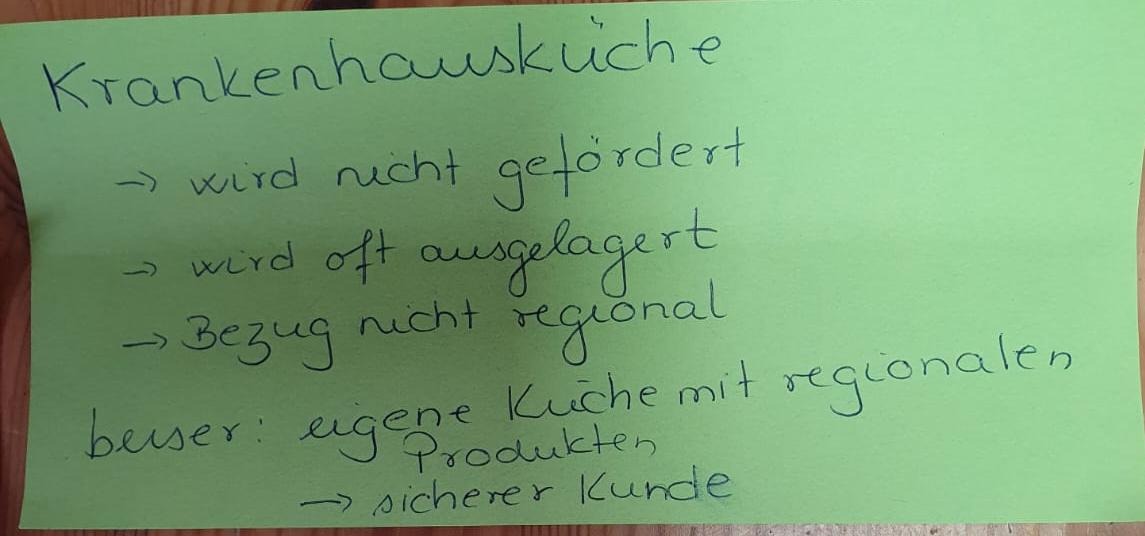 Krankenhausküche
→ wird nicht gefördert
→ wird oft ausgelagert
→ Bezug nicht regional
besser: eigene Küche mit regionalen
Produkten
→ sicherer Kunde